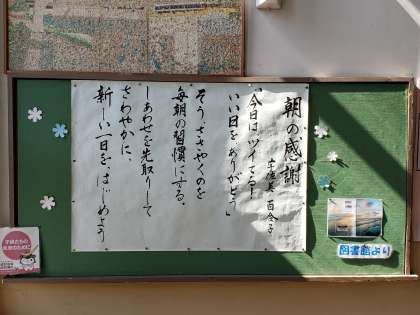 朝の感謝
宇佐美 百合子
「今日はツイてる!
いい日をありがとう」
そう、ささやくのを
毎朝の習慣にする。
しあわせを先取りして
さわやかに、
新しい一日をはじめよう
図書館より